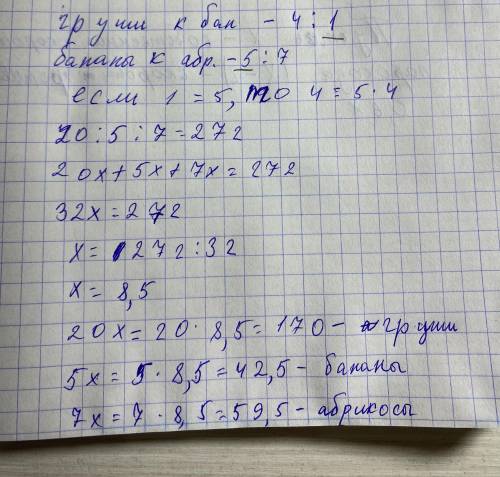 груши к бан - 4 : 1
бананы к абр. - 5 : 7
если 1 = 5, то 4 = 5 · 4
20 : 5 : 7 = 272
20x + 5x + 7x = 272
32x = 272
x = 272 : 32
x = 8,5
20x = 20 · 8,5 = 170 - груши
5x = 5 · 8,5 = 42,5 - бананы
7x = 7 · 8,5 = 59,5 - абрикосы